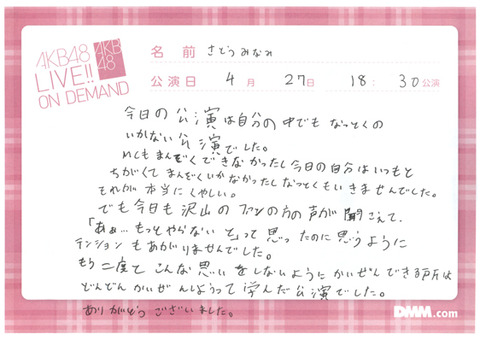 AKB48
LIVE!!
ON DEMAND
AKB
48
名前 さとうみなみ
公演日 4月 27日 18:30公演
今日の公演は自分の中でもなっとくの
いかない公演でした。
MCもまんぞくできなかったし今日の自分はいつもと
ちがくてまんぞくいかなかったしなっとくもいきませんでした。
それが本当にくやしい。
でも今日も沢山のファンの方の声が聞こえて、
「あぁ…もっとやらないと」って思ったのに思うように
テンションもあがりませんでした。
もう二度とこんな思いをしないようにかいぜんできる所は
どんどんかいぜんしようって学んだ公演でした。
ありがとうございました。
DMM.com